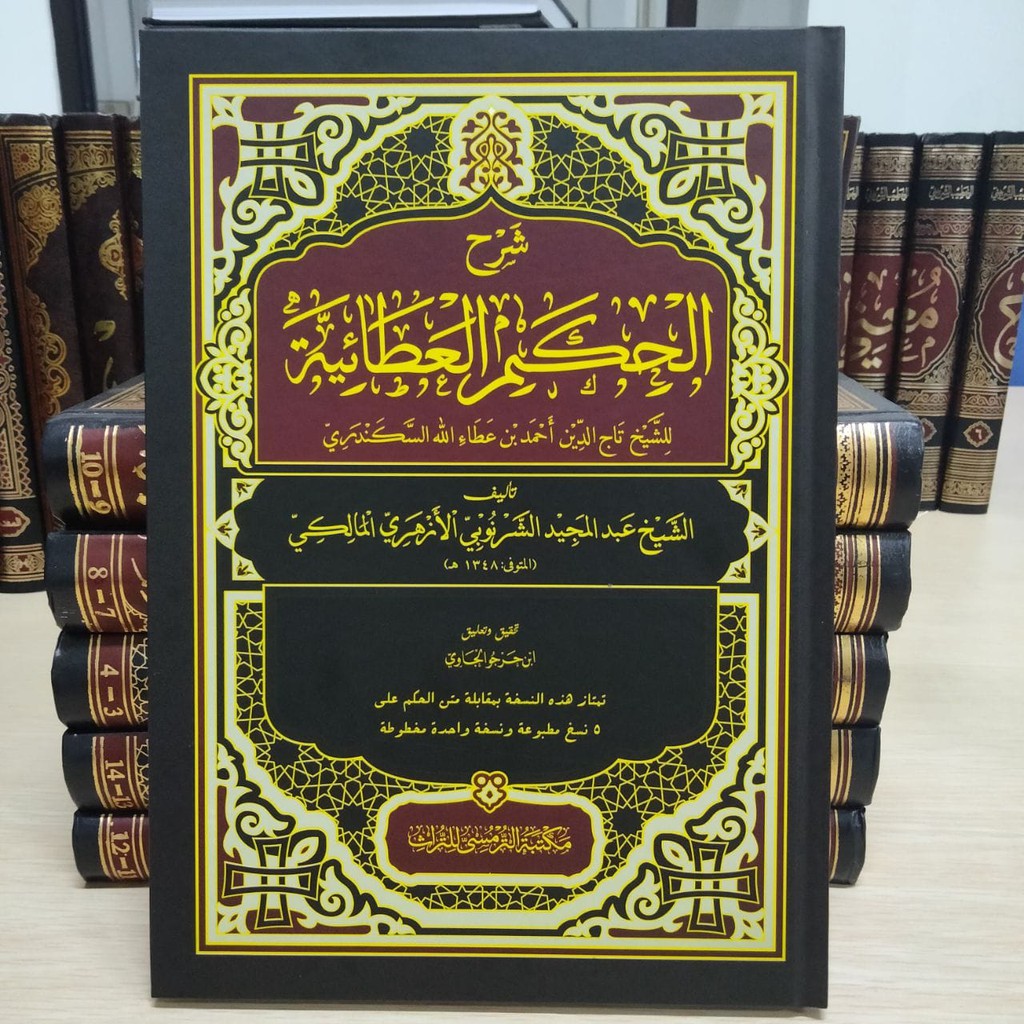 شَرْح
الْحِكَمِ الْعَطَائِيَّةِ
لِلشَّيْخِ تَاجِ الدِّيْنِ أَحْمَدَ بْنِ عَطَاءِ اللهِ السَّكَنْدَرِيِّ
تأليف
الشَّيْخ عَبد المَجِيد الشَّرْنُوبِيّ الأَزْهَرِيّ الْمَالِكِيّ
(المتوفى: ١٣٤٨ هـ)
تحقيق وتعليق
ابن حرجو الجاوي
تمتاز هذه النسخة بمقابلة متن الحكم على
٥ نسخ مطبوعة ونسخة واحدة مخطوطة
مَكْتَبَةُ التُّرْمُسِيِّ لِلتُّرَاثِ
10-9
8-7
4-3
٦